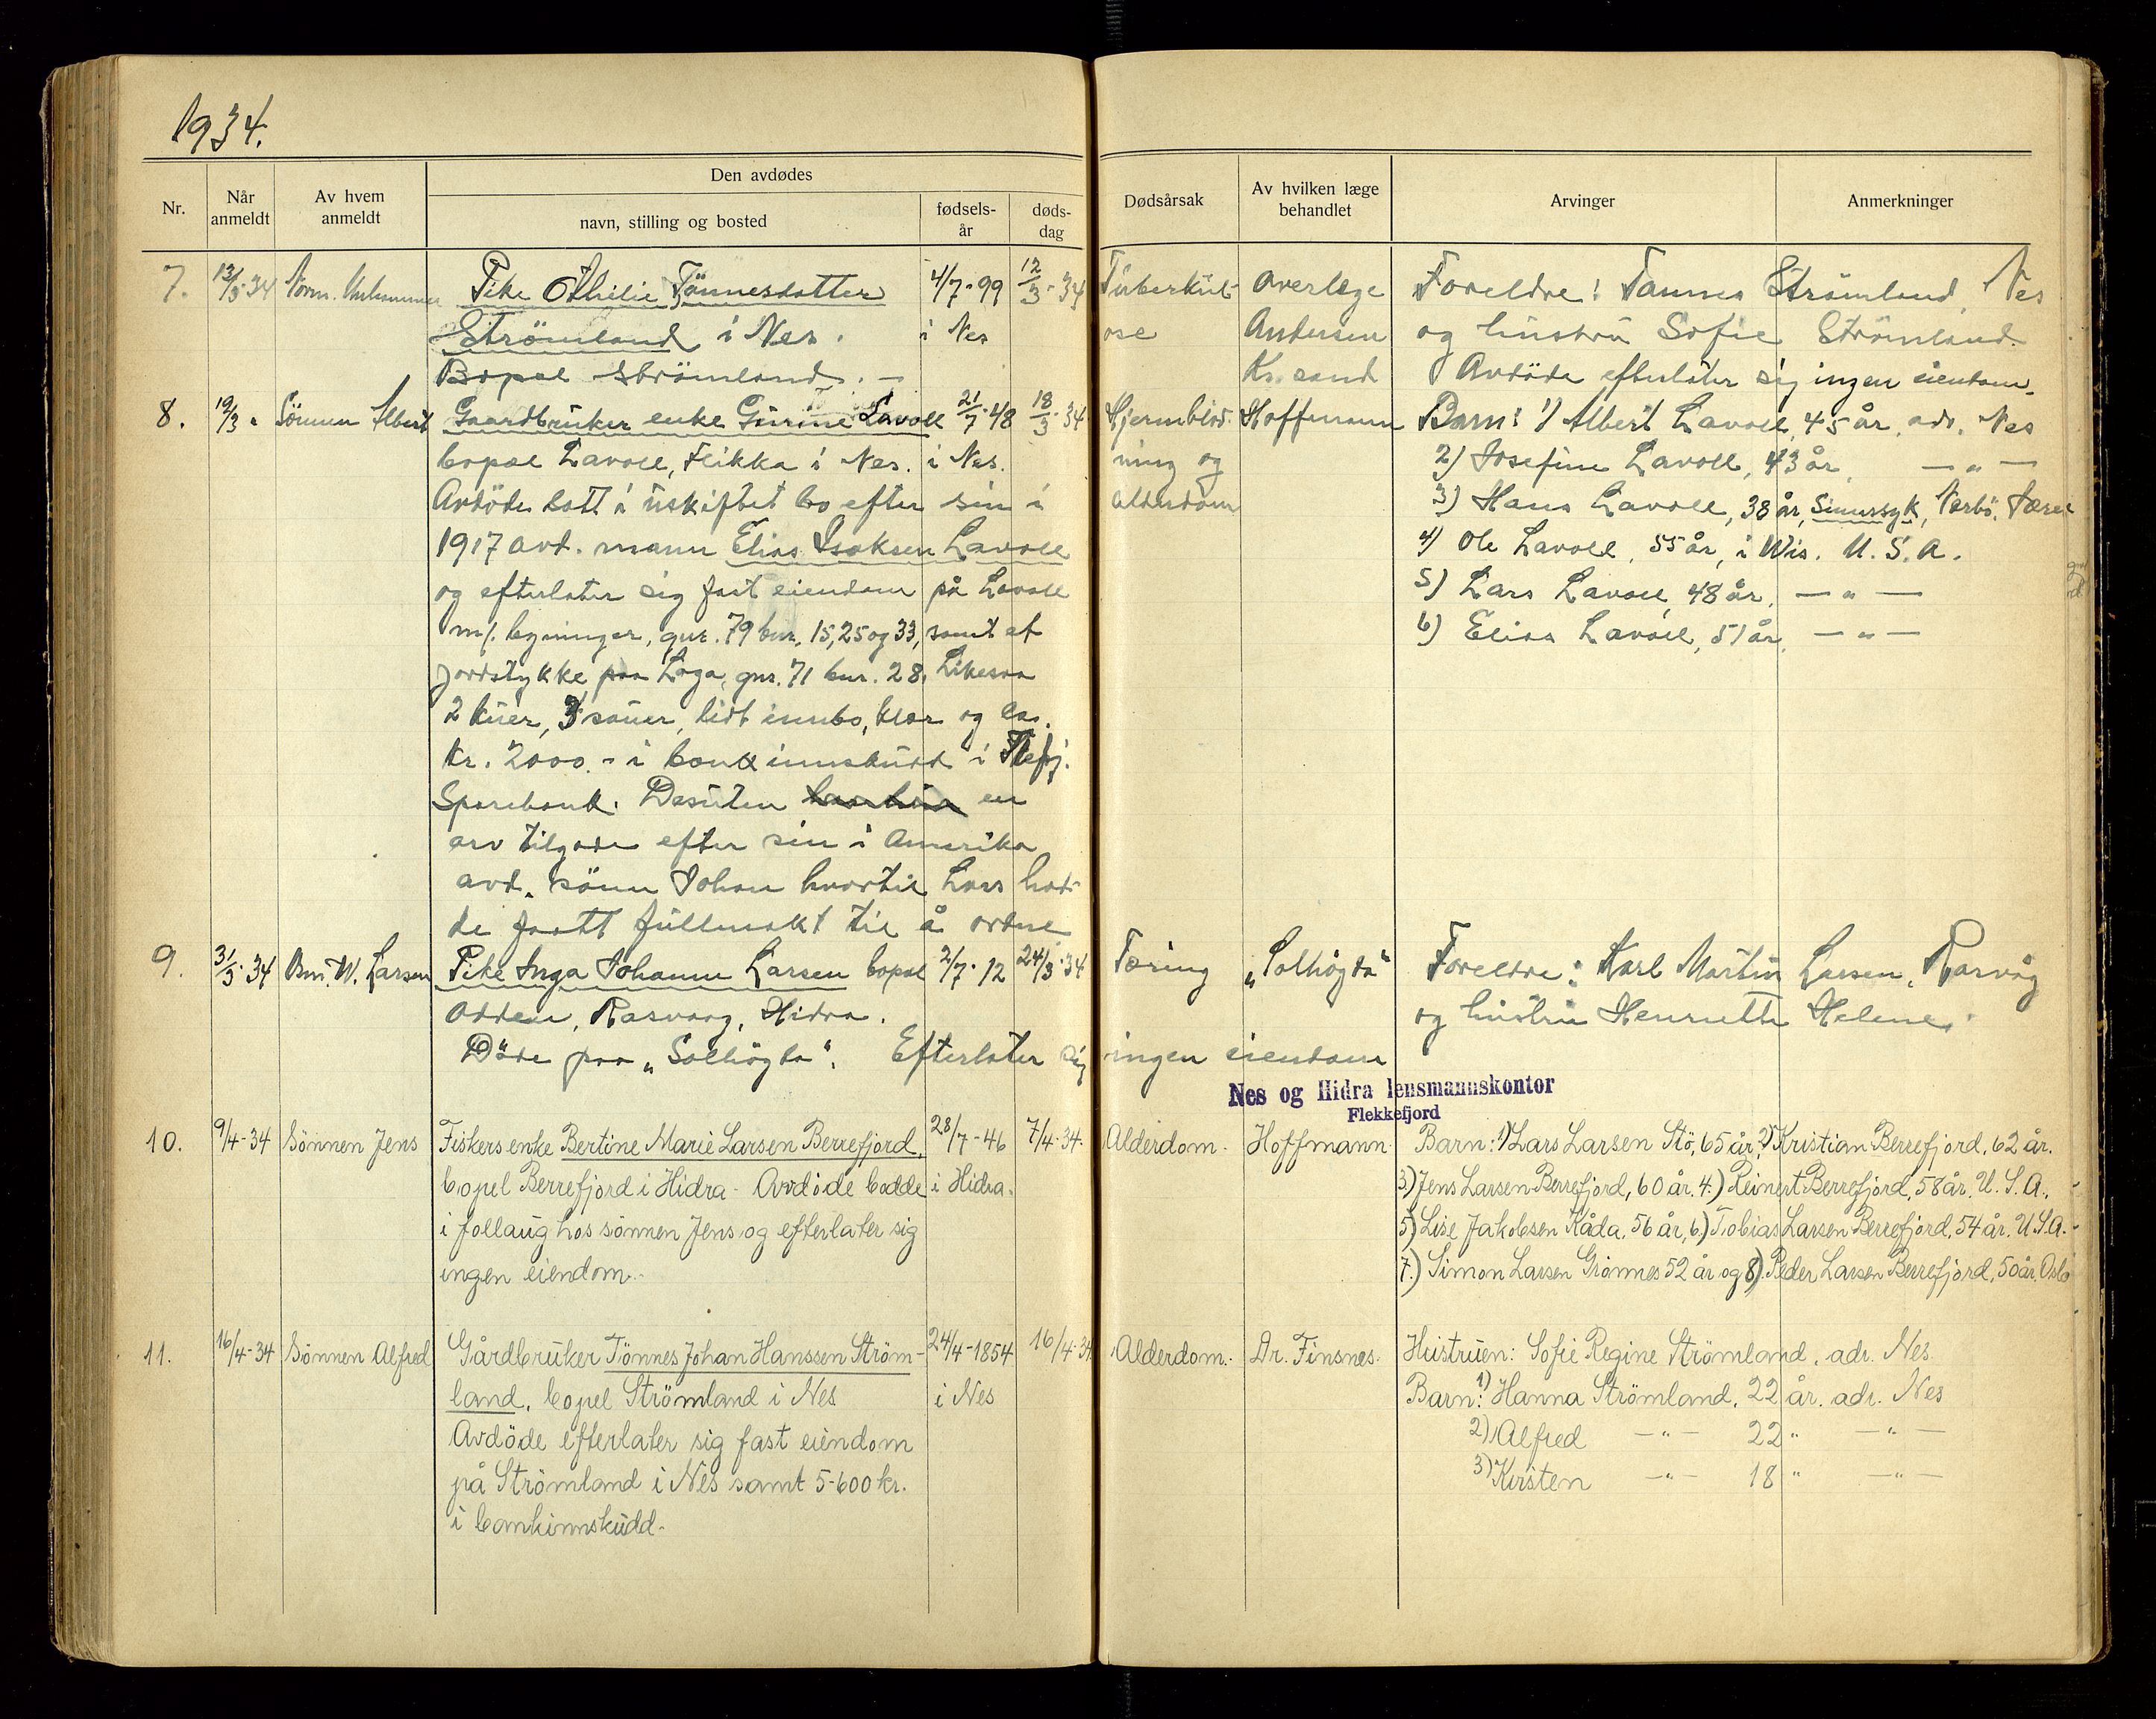 1934.
Nr.
Når anmeldt
Av hvem anmeldt
Den avdødes
navn, stilling og bosted
fødsels-år
døds-dag
Dødsårsak
Av hvilken læge behandlet
Arvinger
Anmerkninger
7. 13/3-34 Pike Othilie Tönnesdatter 4/7-99 12/3-34 Tuberkul- Overlege Foreldre: Tönnes Strömland, Nes
Strömland i Nes. i Nes ose Andersen og hustru Sofie Strömland.
Bopel Strömland. - Kr.sand Avdöde efterlater sig ingen eiendom.
8. 19/3 " Sönnen Albert Gaardbruker enke Gurine Lavoll 21/7-48 18/3-34 Hjerneblöd- Hoffmann Barn: 1) Albert Lavoll, 45 år, adr. Nes
bopel Lavoll, Flikka i Nes. i Nes. ning og 2) Josefine Lavoll, 43 år, — " —
Avdöde satt i uskiftet bo efter sin i alderdom 3) Hans Lavoll, 38 år, Sinnssyk, Nærbö, Jæren
1917 avd. mann Elias Isaksen Lavoll 4) Ole Lavoll, 55 år, i Wis. U.S.A.
og efterlater sig fast eiendom på Lavoll 5) Lars Lavoll, 48 år, — " —
m/. bygninger, gnr. 79 bnr. 15, 25 og 33, samt et 6) Elias Lavoll, 51 år, — " —
jordstykke paa Loga, gnr. 71 bnr. 28. Likesaa
2 kuer, 3 sauer, lidt innbo, klær og ca.
kr. 2000.- i bankinnskudd i Flefj.
Sparebank. Desuten en
arv tilgode efter sin i Amerika
avd. sönn Johan hvortil Lars had-
de faatt fullmakt til å ordne
9. 31/3-34 Bm. W. Larsen Pike Inga Johanne Larsen bopel 2/7-12 24/3-34 Tæring "Solhögda" Foreldre: Karl Martin Larsen, Rasvåg
Odden, Rasvaag, Hidra. og hustru Henriette Helene.
Döde paa "Solhögda". Efterlater sig ingen eiendom
Nes og Hidra lensmannskontor
Flekkefjord
10. 9/4-34 Sönnen Jens Fiskersenke Bertine Marie Larsen Berrefjord, 28/7-46 7/4-34. Alderdom. Hoffmann. Barn: 1) Lars Larsen Stö, 65 år, 2) Kristian Berrefjord, 62 år.
bopel Berrefjord i Hidra - Avdöde bodde i Hidra. 3) Jens Larsen Berrefjord, 60 år. 4.) Reinert Berrefjord, 58 år, U.S.A.,
i follaug hos sönnen Jens og efterlater sig 5) Lise Jakobsen Kåda, 56 år, 6.) Tobias Larsen Berrefjord, 54 år. U.S.A. -
ingen eiendom. 7.) Simon Larsen Grönnes 52 år og 8). Peder Larsen Berrefjord, 50 år. Oslo
11. 16/4-34 Sönnen Alfred Gårdbruker Tönnes Johan Hanssen Ström- 24/4-1854 16/4-34 Alderdom. Dr. Finsnes. Hustruen: Sofie Regine Strömland, adr. Nes
land, bopel Strömland i Nes i Nes Barn: 1) Hanna Strömland, 22 år. adr. Nes
Avdöde efterlater sig fast eiendom 2) Alfred — " — 22 " — " —
på Strömland i Nes samt 5-600 kr. 3) Kirsten — " — 18 " — " —
i bankinnskudd.